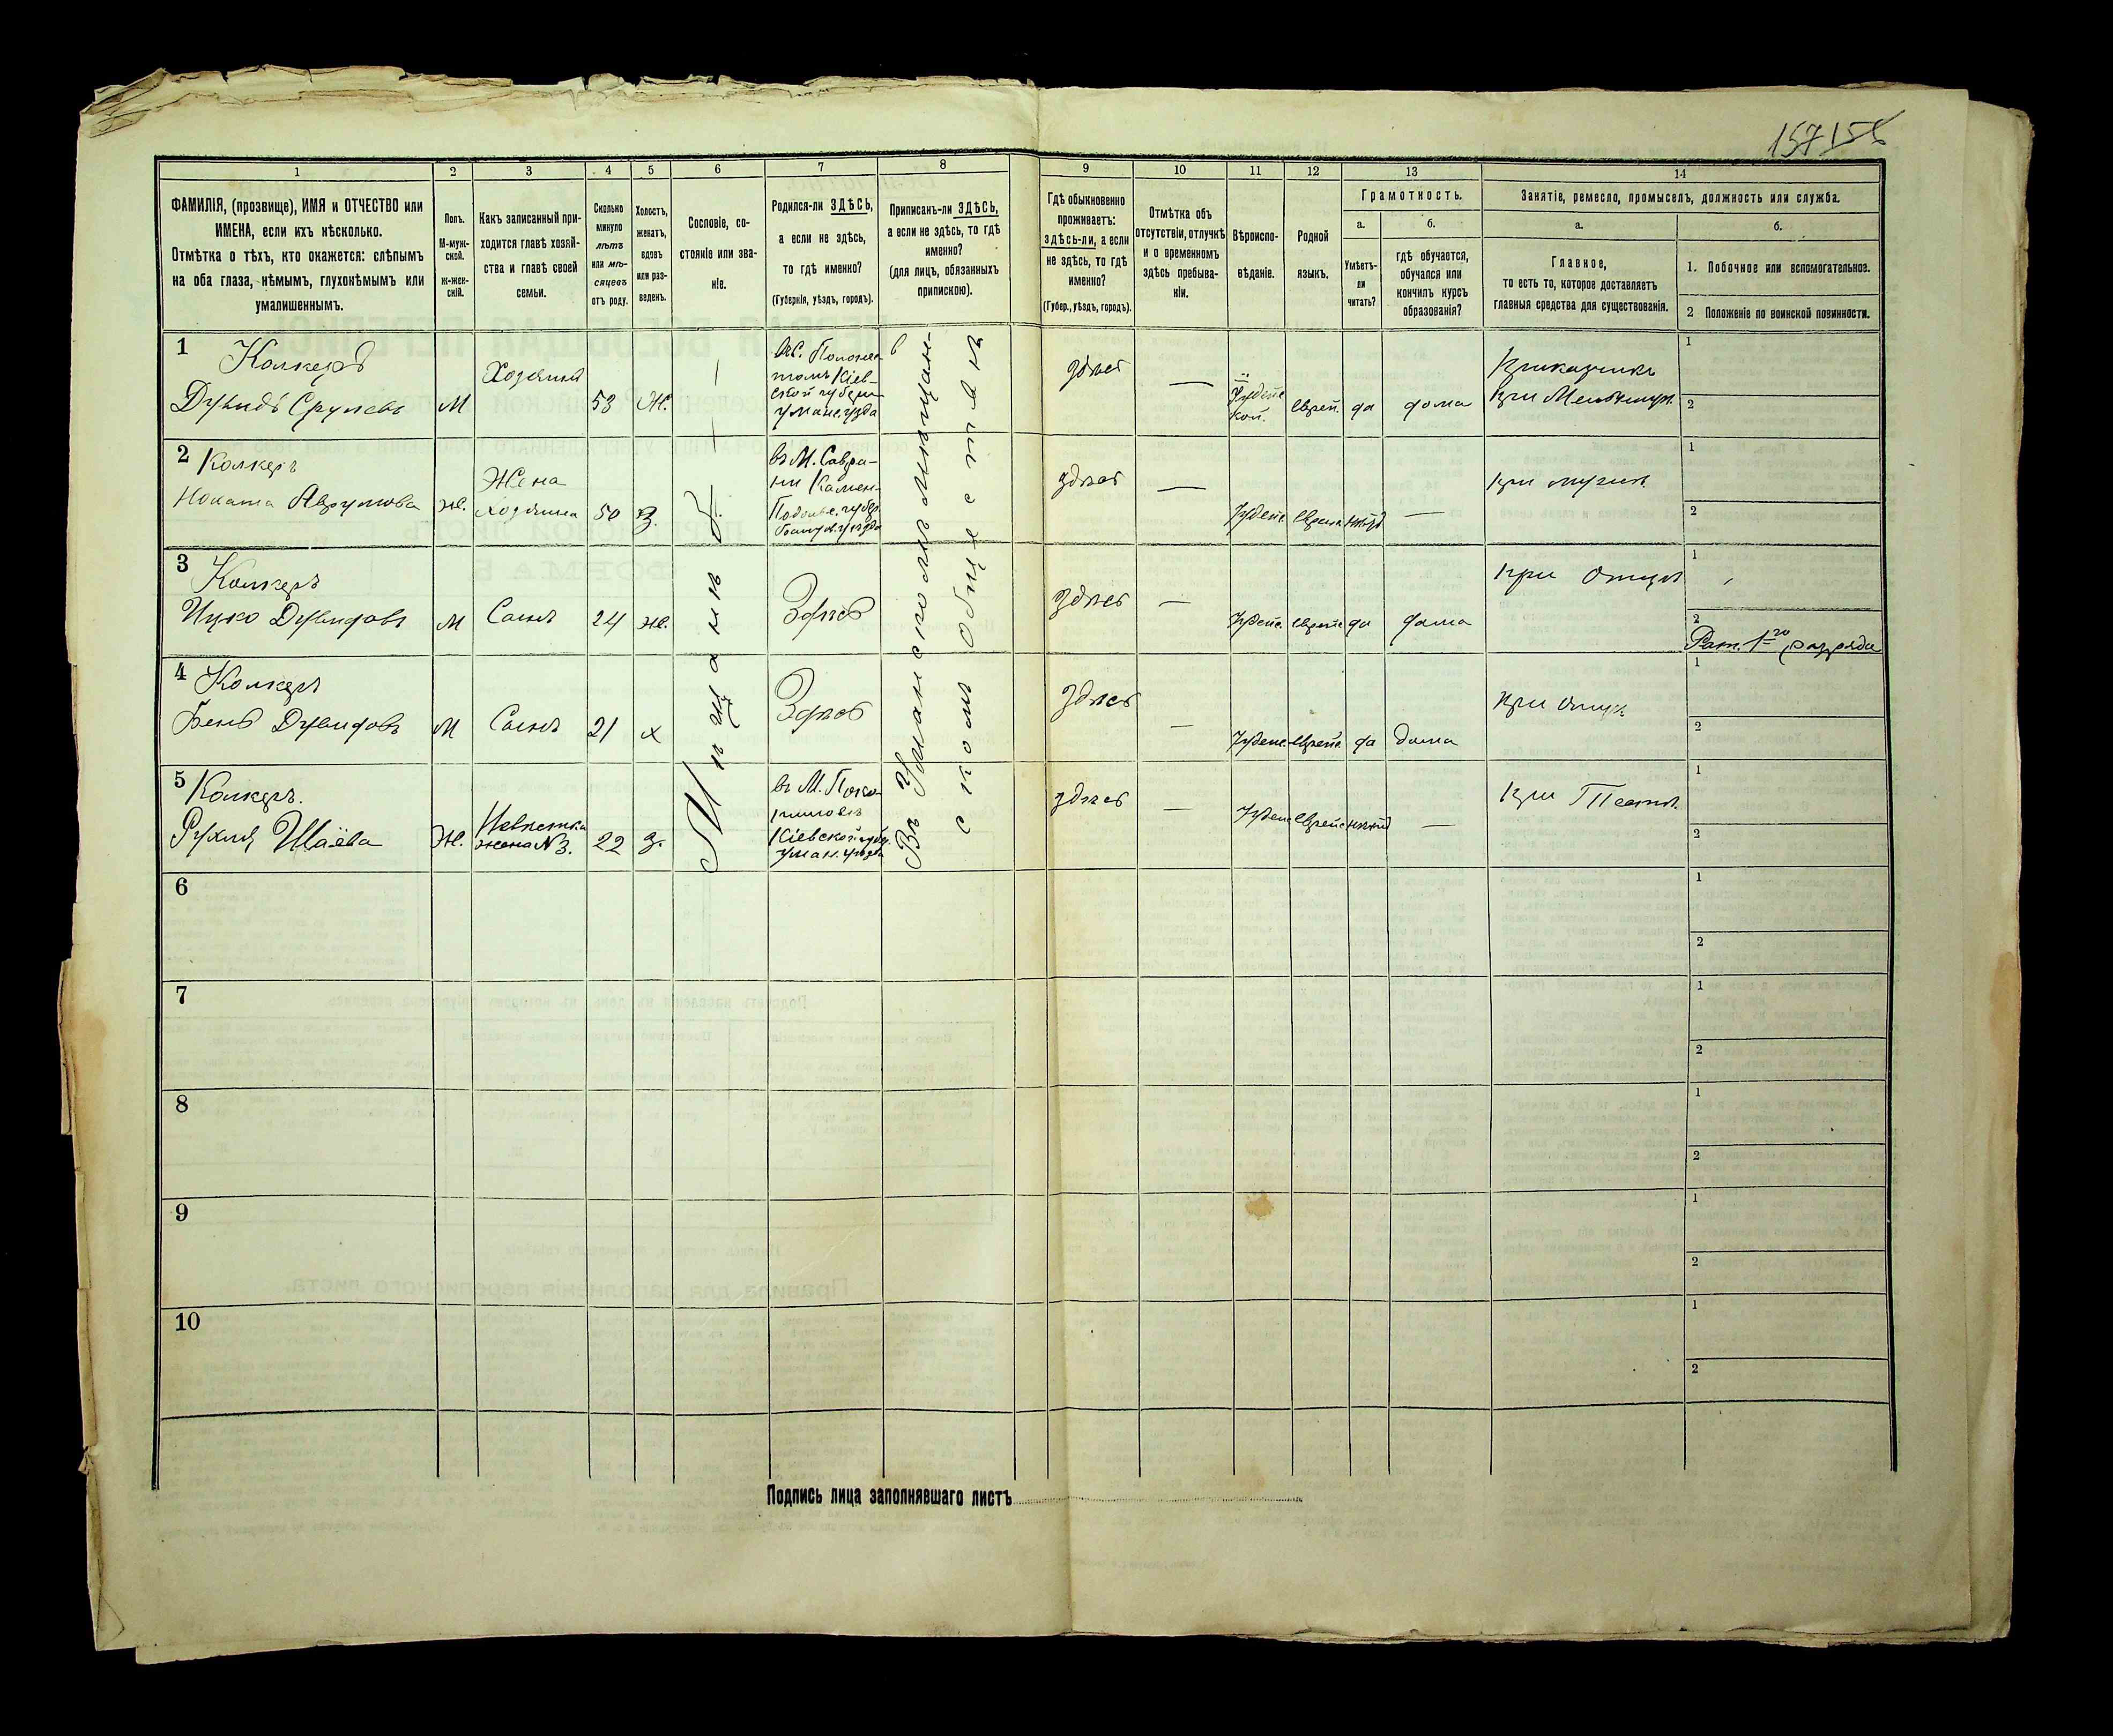 157 156
1
2
3
4
5
6
7
8
9
10
11
12
13
14
ФАМИЛІЯ, (прозвище), ИМЯ и ОТЧЕСТВО или
ИМЕНА, если ихъ нѣсколько.
Отмѣтка о тѣхъ, кто окажется: слѣпымъ
на оба глаза, нѣмымъ, глухонѣмымъ или
умалишеннымъ.
Полъ.
М-муж-
ской.
Ж-жен-
скій.
Какъ записанный при-
ходится главѣ хозяй-
ства и главѣ своей
семьи.
Сколько
минуло
лѣтъ
или мѣ-
сяцевъ
отъ роду.
Холостъ,
женатъ,
вдовъ
или раз-
веденъ.
Сословіе, со-
стояніе или зва-
ніе.
Родился-ли ЗДѢСЬ,
а если не здѣсь,
то гдѣ именно?
(Губернія, уѣздъ, городъ).
Приписанъ-ли ЗДѢСЬ,
а если не здѣсь, то гдѣ
именно?
(для лицъ, обязанныхъ
припискою).
Гдѣ обыкновенно
проживаетъ:
здѣсь-ли, а если
не здѣсь, то гдѣ
именно?
(Губер., уѣздъ, городъ).
Отмѣтка объ
отсутствіи, отлучкѣ
и о временномъ
здѣсь пребыва-
ніи.
Вѣроиспо-
вѣданіе.
Родной
языкъ.
Грамотность.
а.
Умѣетъ-
ли
читать?
б.
гдѣ обучается,
обучался или
кончилъ курсъ
образованія?
Занятіе, ремесло, промыселъ, должность или служба.
а.
Главное,
то есть то, которое доставляетъ
главныя средства для существованія.
б.
1. Побочное или вспомогательное.
2 Положеніе по воинской повинности.
1 Колкеръ
Дувидъ Срулевъ
М
Хозяинъ
53
Ж.
Кіев-
ской губерн
здѣсь
—
Іудейс
кой.
Еврей.
да
дома
Прикащикъ
1
2
2 Колкеръ
Аврумова
Ж.
Жена
хозяина
50
З.
въ М. Савра-
ни Камен-
Подольс. губер.
здѣсь
—
Іудейс.
—
при мужѣ
1
2
3 Колкеръ
Ицко Дувидовъ
М
Сынъ
24
Ж.
Здѣсь
здѣсь
—
Іудейс.
Еврейс
да
дома
при отцѣ
1
2
Рат. 1го разряда
4 Колкеръ
Бень Дувидовъ
М
Сынъ
21
х
Здѣсь
здѣсь
—
Іудейс.
Еврейс.
да
дома
при отцѣ
1
2
5 Колкеръ.
Рухля Шаёва
Ж.
Невѣстка
жена №3.
22
З.
Кіевской губер.
Уман. уѣзда
здѣсь
—
Іудейс
Еврейс
—
1
2
Мѣщане
Въ Уманскомъ Мѣщан-
скомъ Обществѣ
6
1
2
7
1
2
8
1
2
9
1
2
10
1
2
Подпись лица заполнявшаго листъ